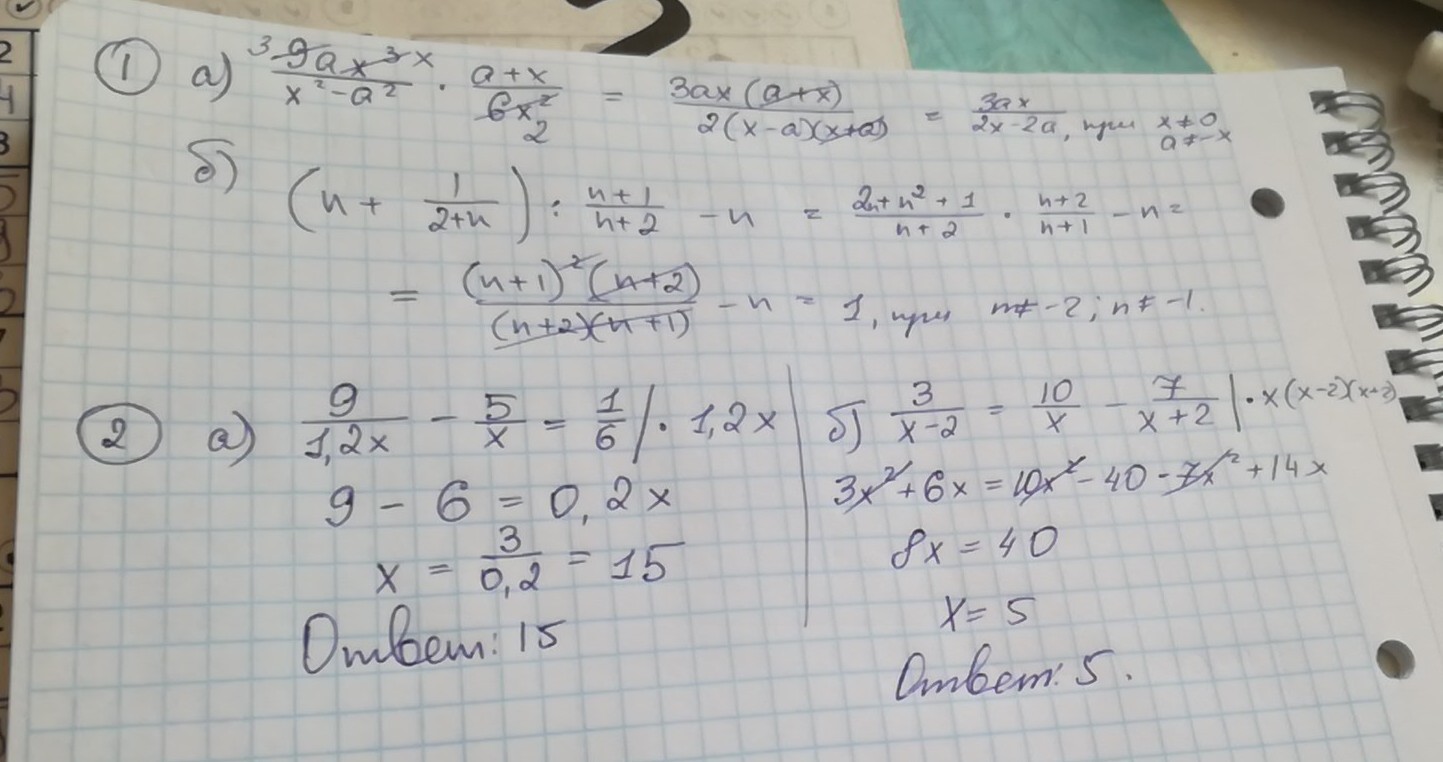 1 а) ³9ax³ x / x²-a² · a+x / 6x² 2 = 3ax(a+x) / 2(x-a)(x+a) = 3ax / 2x-2a, при x≠0 a≠-x
б) (n + 1 / 2+n) : n+1 / n+2 - n = 2n+n²+1 / n+2 · n+2 / n+1 - n =
= (n+1)²(n+2) / (n+2)(n+1) - n = 1, при n≠-2; n≠-1.
2 а) 9 / 1,2x - 5 / x = 1 / 6 | · 1,2x
9 - 6 = 0,2x
x = 3 / 0,2 = 15
Ответ: 15
б) 3 / x-2 = 10 / x - 7 / x+2 | · x(x-2)(x+2)
3x²+6x = 10x²-40-7x²+14x
8x = 40
x = 5
Ответ: 5.